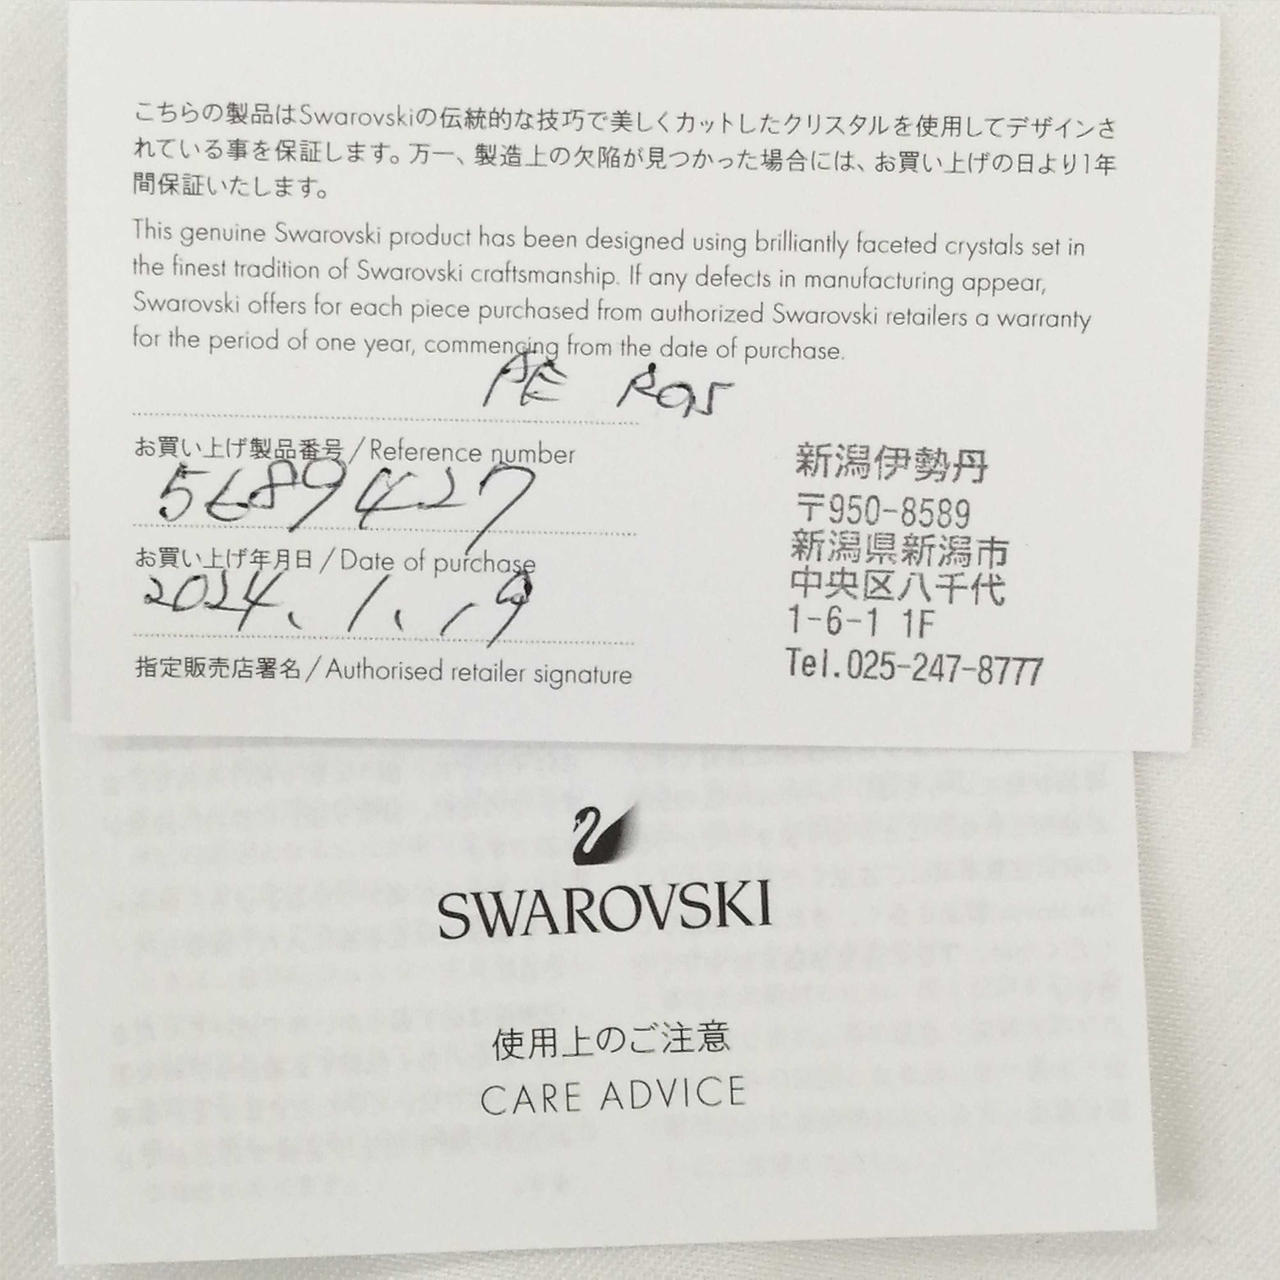 こちらの製品はSwarovskiの伝統的な技巧で美しくカットしたクリスタルを使用してデザインさ
れている事を保証します。万一、製造上の欠陥が見つかった場合には、お買い上げの日より1年
間保証いたします。
This genuine Swarovski product has been designed using brilliantly faceted crystals set in
the finest tradition of Swarovski craftsmanship. If any defects in manufacturing appear,
Swarovski offers for each piece purchased from authorized Swarovski retailers a warranty
for the period of one year, commencing from the date of purchase.
PE ROS
お買い上げ製品番号/Reference number
5689427
お買い上げ年月日/Date of purchase
2024、1、19
指定販売店署名/Authorised retailer signature
新潟伊勢丹
〒950-8589
新潟県新潟市
中央区八千代
1-6-1 1F
Tel.025-247-8777
SWAROVSKI
使用上のご注意
CARE ADVICE